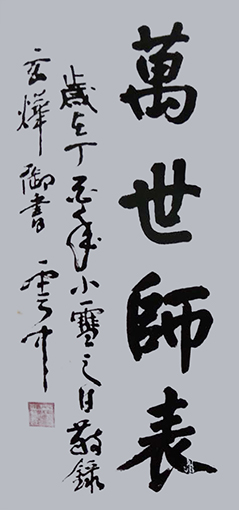 萬世師表
歲在丁酉年小雪之日敬錄
玄燁御書